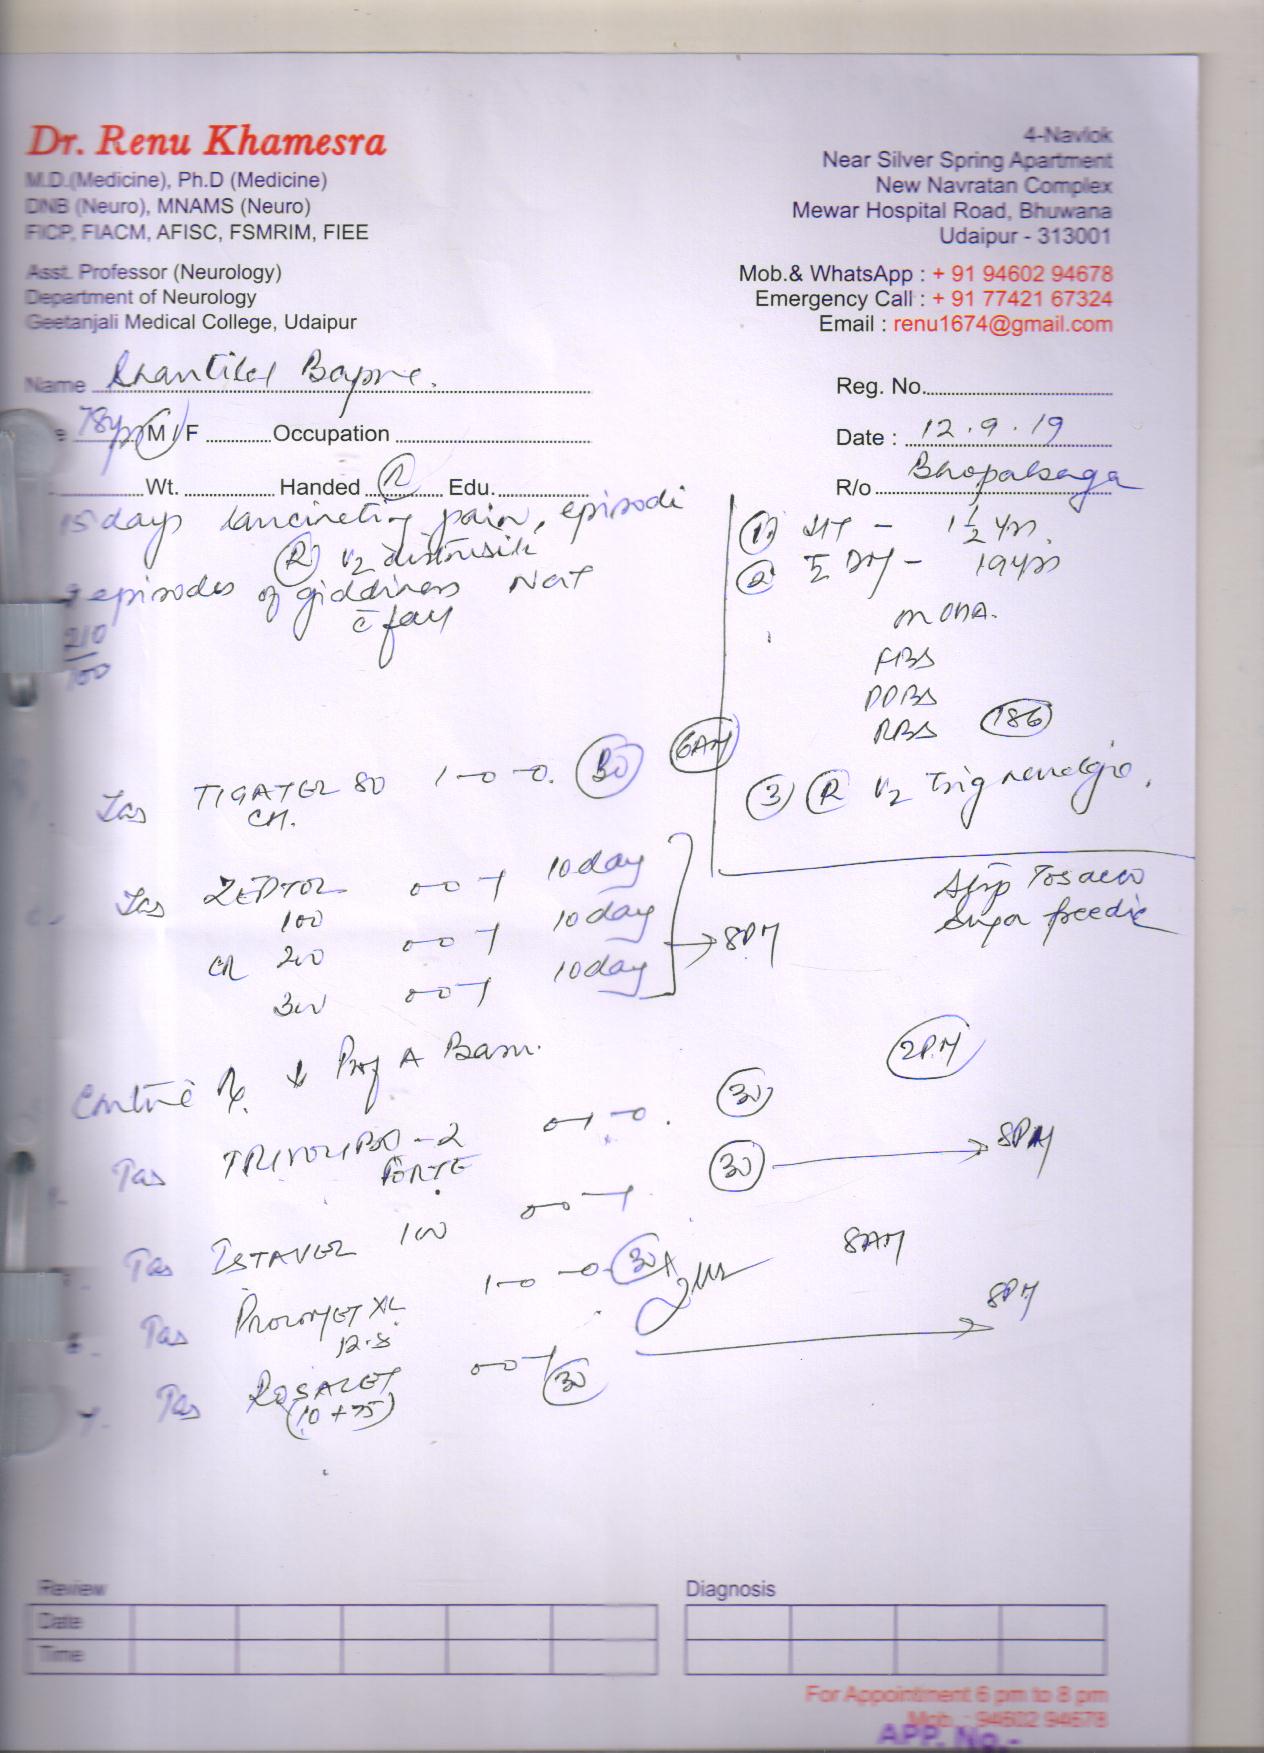 Dr. Renu Khamesra
M.D.(Medicine), Ph.D (Medicine)
DNB (Neuro), MNAMS (Neuro)
FICP, FIACM, AFISC, FSMRIM, FIEE
Asst. Professor (Neurology)
Department of Neurology
Geetanjali Medical College, Udaipur
4-Navlok
Near Silver Spring Apartment
New Navratan Complex
Mewar Hospital Road, Bhuwana
Udaipur - 313001
Mob.& WhatsApp : + 91 94602 94678
Emergency Call : + 91 77421 67324
Email : renu1674@gmail.com
Name
Reg. No.
78 M / F Occupation
Date : 12.9.19
Wt. Handed R Edu.
R/o
15 days lancinating pain, episodi
(R) V2
episodes of giddiness
210
100
(1) HT - 1 1/2 yrs.
(2) DM - 19 yrs
FBS
PPBS
RBS (186)
(3) (R) V2 Trig neuralgia.
Stop Tobacco
Tab 80 1-0-0. (30) (6AM)
Tab ZEPTOL 0-0-1 10 day
100
CR 200 0-0-1 10 day
300 0-0-1 10 day
→ 8PM
Prof A
(2P.M)
Tab -2 0-1-0. (30)
FORTE
(30) → 8PM
Tab ISTAVEL 100 0-0-1
Tab PROLOMET XL 1-0-0 (30) 8AM
12.5
Tab 0-0-1 (30) → 8PM
(10+75)
Review
Date
Time
Diagnosis
For Appointment 6 pm to 8 pm
Mob. : 94602 94678
APP. No.-